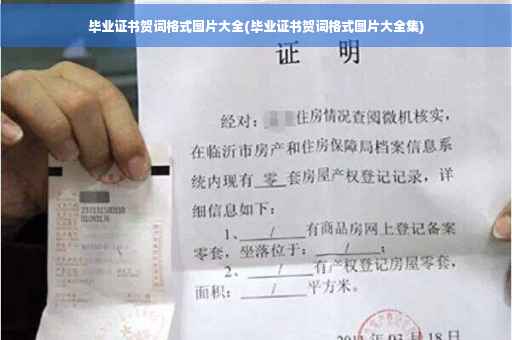 毕业证书贺词格式图片大全(毕业证书贺词格式图片大全集)
证 明
经对：住房情况查阅微机核实，
在临沂市房产和住房保障局档案信息系
统内现有 零 套房屋产权登记记录，详
细信息如下：
1、 / 有商品房网上登记备案
零套，坐落位于： / ；
2、 / 有产权登记房屋零套，
面积： / 平方米。
03月18日